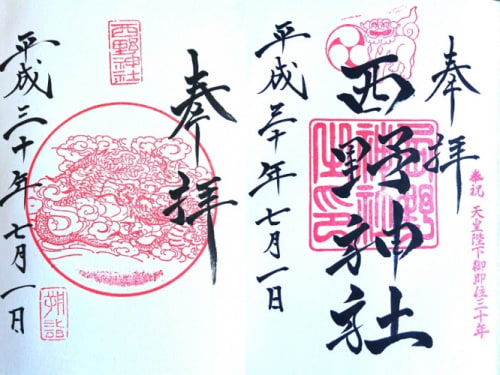 奉祝 天皇陛下御即位三十年
奉拝
西野神社
西野神社之印
平成三十年七月一日
奉拝
西野神社
朔詣
平成三十年七月一日